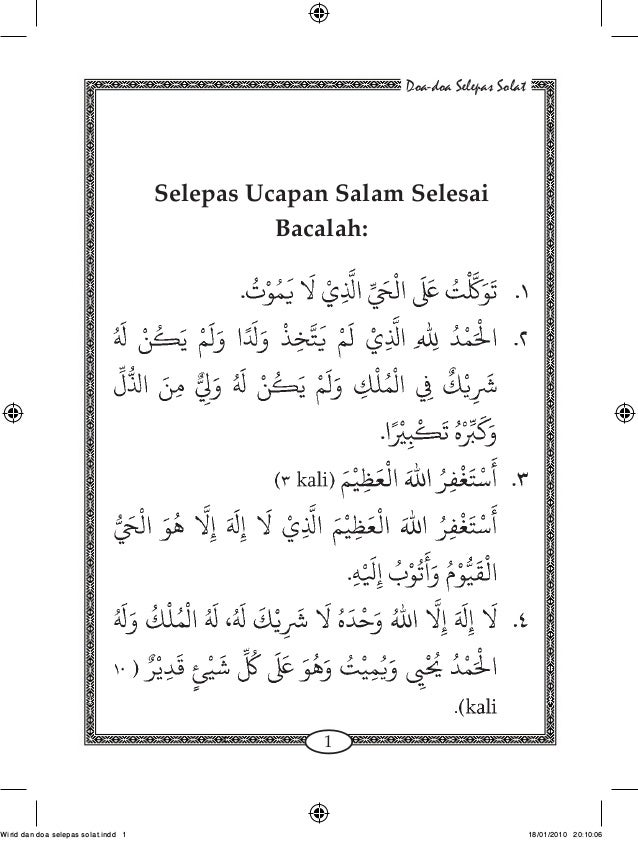 Doa-doa Selepas Solat
Selepas Ucapan Salam Selesai
Bacalah:
١. تَوَكَّلْتُ عَلَى الْحَيِّ الَّذِيْ لَا يَمُوْتُ.
٢. الْحَمْدُ لِلهِ الَّذِيْ لَمْ يَتَّخِذْ وَلَدًا وَلَمْ يَكُنْ لَهُ
شَرِيْكٌ فِي الْمُلْكِ وَلَمْ يَكُنْ لَهُ وَلِيٌّ مِنَ الذُّلِّ
وَكَبِّرْهُ تَكْبِيْرًا.
٣. أَسْتَغْفِرُ اللهَ الْعَظِيْمَ (٣ kali)
أَسْتَغْفِرُ اللهَ الْعَظِيْمَ الَّذِيْ لَا إِلَهَ إِلَّا هُوَ الْحَيُّ
الْقَيُّوْمُ وَأَتُوْبُ إِلَيْهِ.
٤. لَا إِلَهَ إِلَّا اللهُ وَحْدَهُ لَا شَرِيْكَ لَهُ، لَهُ الْمُلْكُ وَلَهُ
الْحَمْدُ يُحْيِي وَيُمِيْتُ وَهُوَ عَلَى كُلِّ شَيْئٍ قَدِيْرٌ (١٠
kali).
1
Wirid dan doa selepas solat.indd 1
18/01/2010 20:10:06